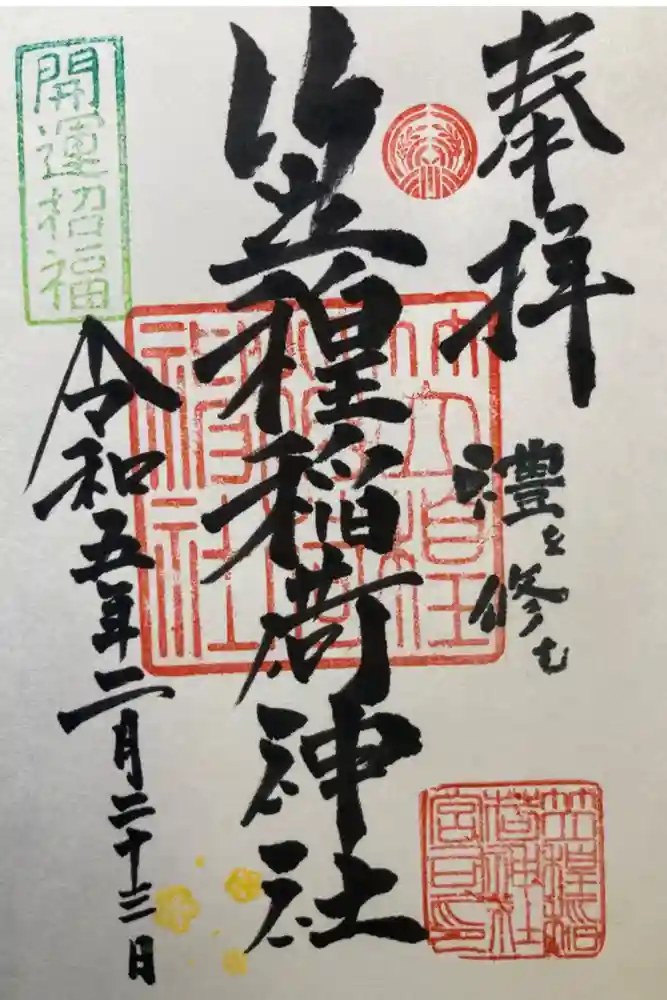 奉拝
禮を修む
笠䅣稲荷神社
令和五年二月二十三日
開運招福
笠䅣
稲荷
神社
笠䅣稲
荷神社
宮司之印